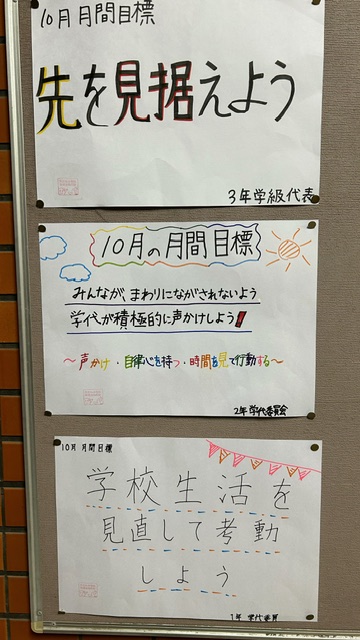 10月 月間目標
先を見据えよう
3年学級代表
10月の月間目標
みんなが、まわりにながされないよう
学代が積極的に声かけしよう!
〜声かけ・自律心を持つ・時間を見て行動する〜
2年 学代委員会
10月 月間目標
学校生活を
見直して考動
しよう
1年 学代委員